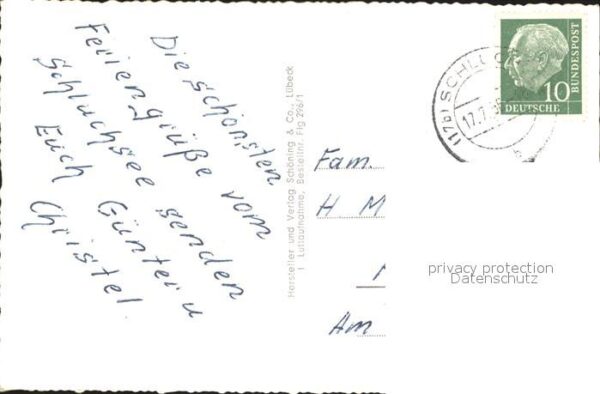 Die schönsten
Feriengrüße vom
Schluchsee senden
Euch Günter u
Christel.
Hersteller und Verlag Schöning & Co., Lübeck
1 Luftaufnahme, Bestellnr. Flg 296/1
(17b) SCHLUC
17.7.
10
DEUTSCHE
BUNDESPOST
Fam.
H M
Am
privacy protection
Datenschutz